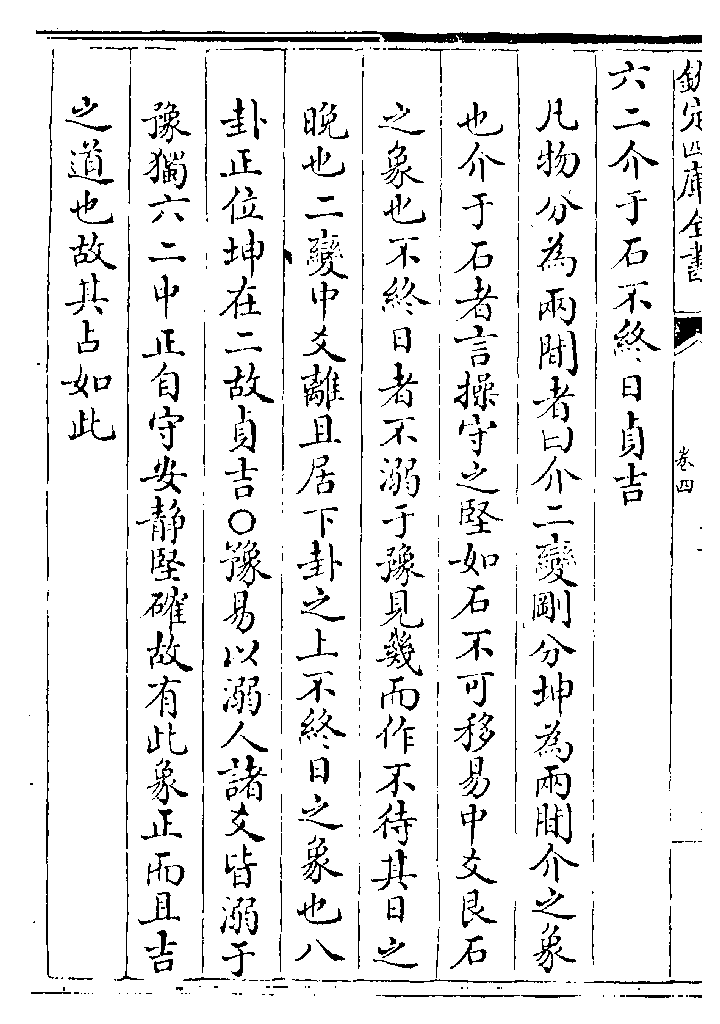 欽定四庫全書
卷四
六二介于石不終日貞吉
凡物分為兩間者曰介二變剛分坤為兩間介之象
也介于石者言操守之堅如石不可移易中爻艮石
之象也不終日者不溺于豫見幾而作不待其日之
晚也二變中爻離且居下卦之上不終日之象也八
卦正位坤在二故貞吉○豫易以溺人諸爻皆溺于
豫獨六二中正自守安静堅確故有此象正而且吉
之道也故其占如此